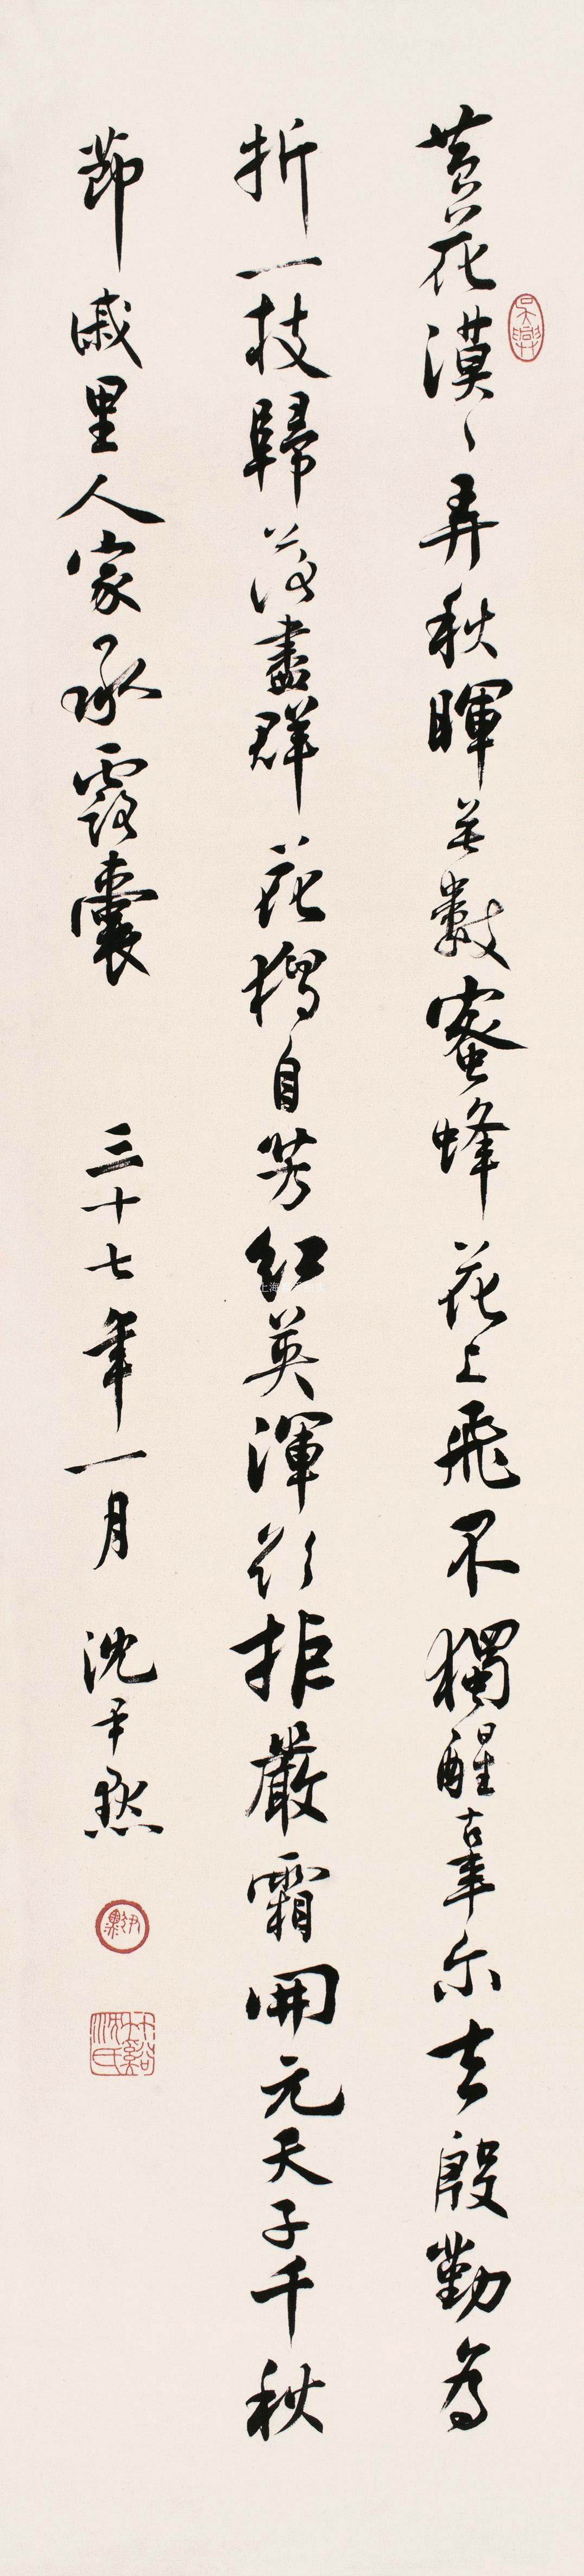 黄花漠〻弄秋暉無數蜜蜂花上飛不獨醒辜尔去殷勤為
折一枝歸落盡群花獨自芳紅英渾欲拒嚴霜開元天子千秋
節戚里人家承露囊
三十七年一月
沈尹默
吴興
尹默
竹谿沈氏